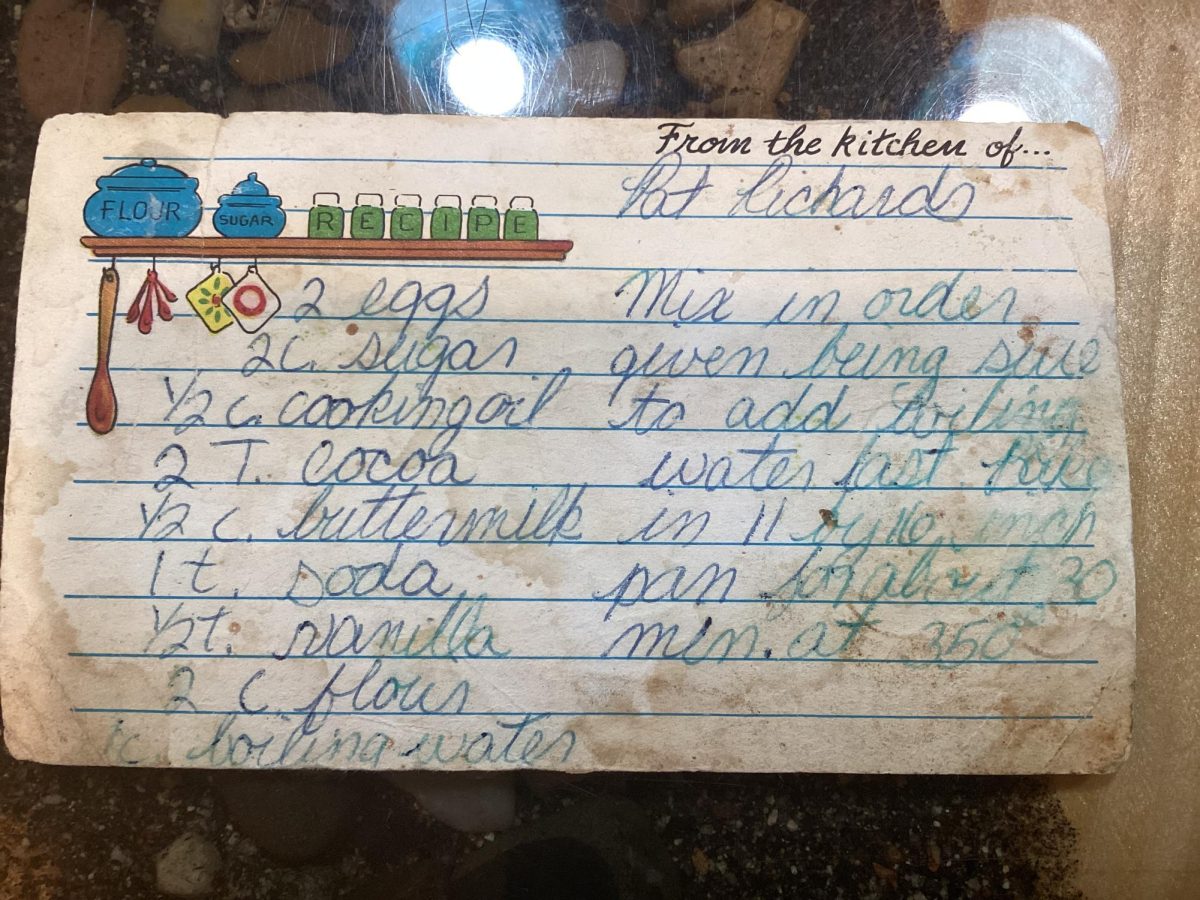 From the kitchen of...
FLOUR
SUGAR
RECIPE
Pat Richards
2 eggs
2 c. sugar
1/2 c. cooking oil
2 T. cocoa
1/2 c. buttermilk
1 t. soda
1/2 t. vanilla
2 c. flour
1c. boiling water
Mix in order
given being sure
to add boiling
water last. Bake
in 11 by 16 inch
pan for about 30
min. at 350°